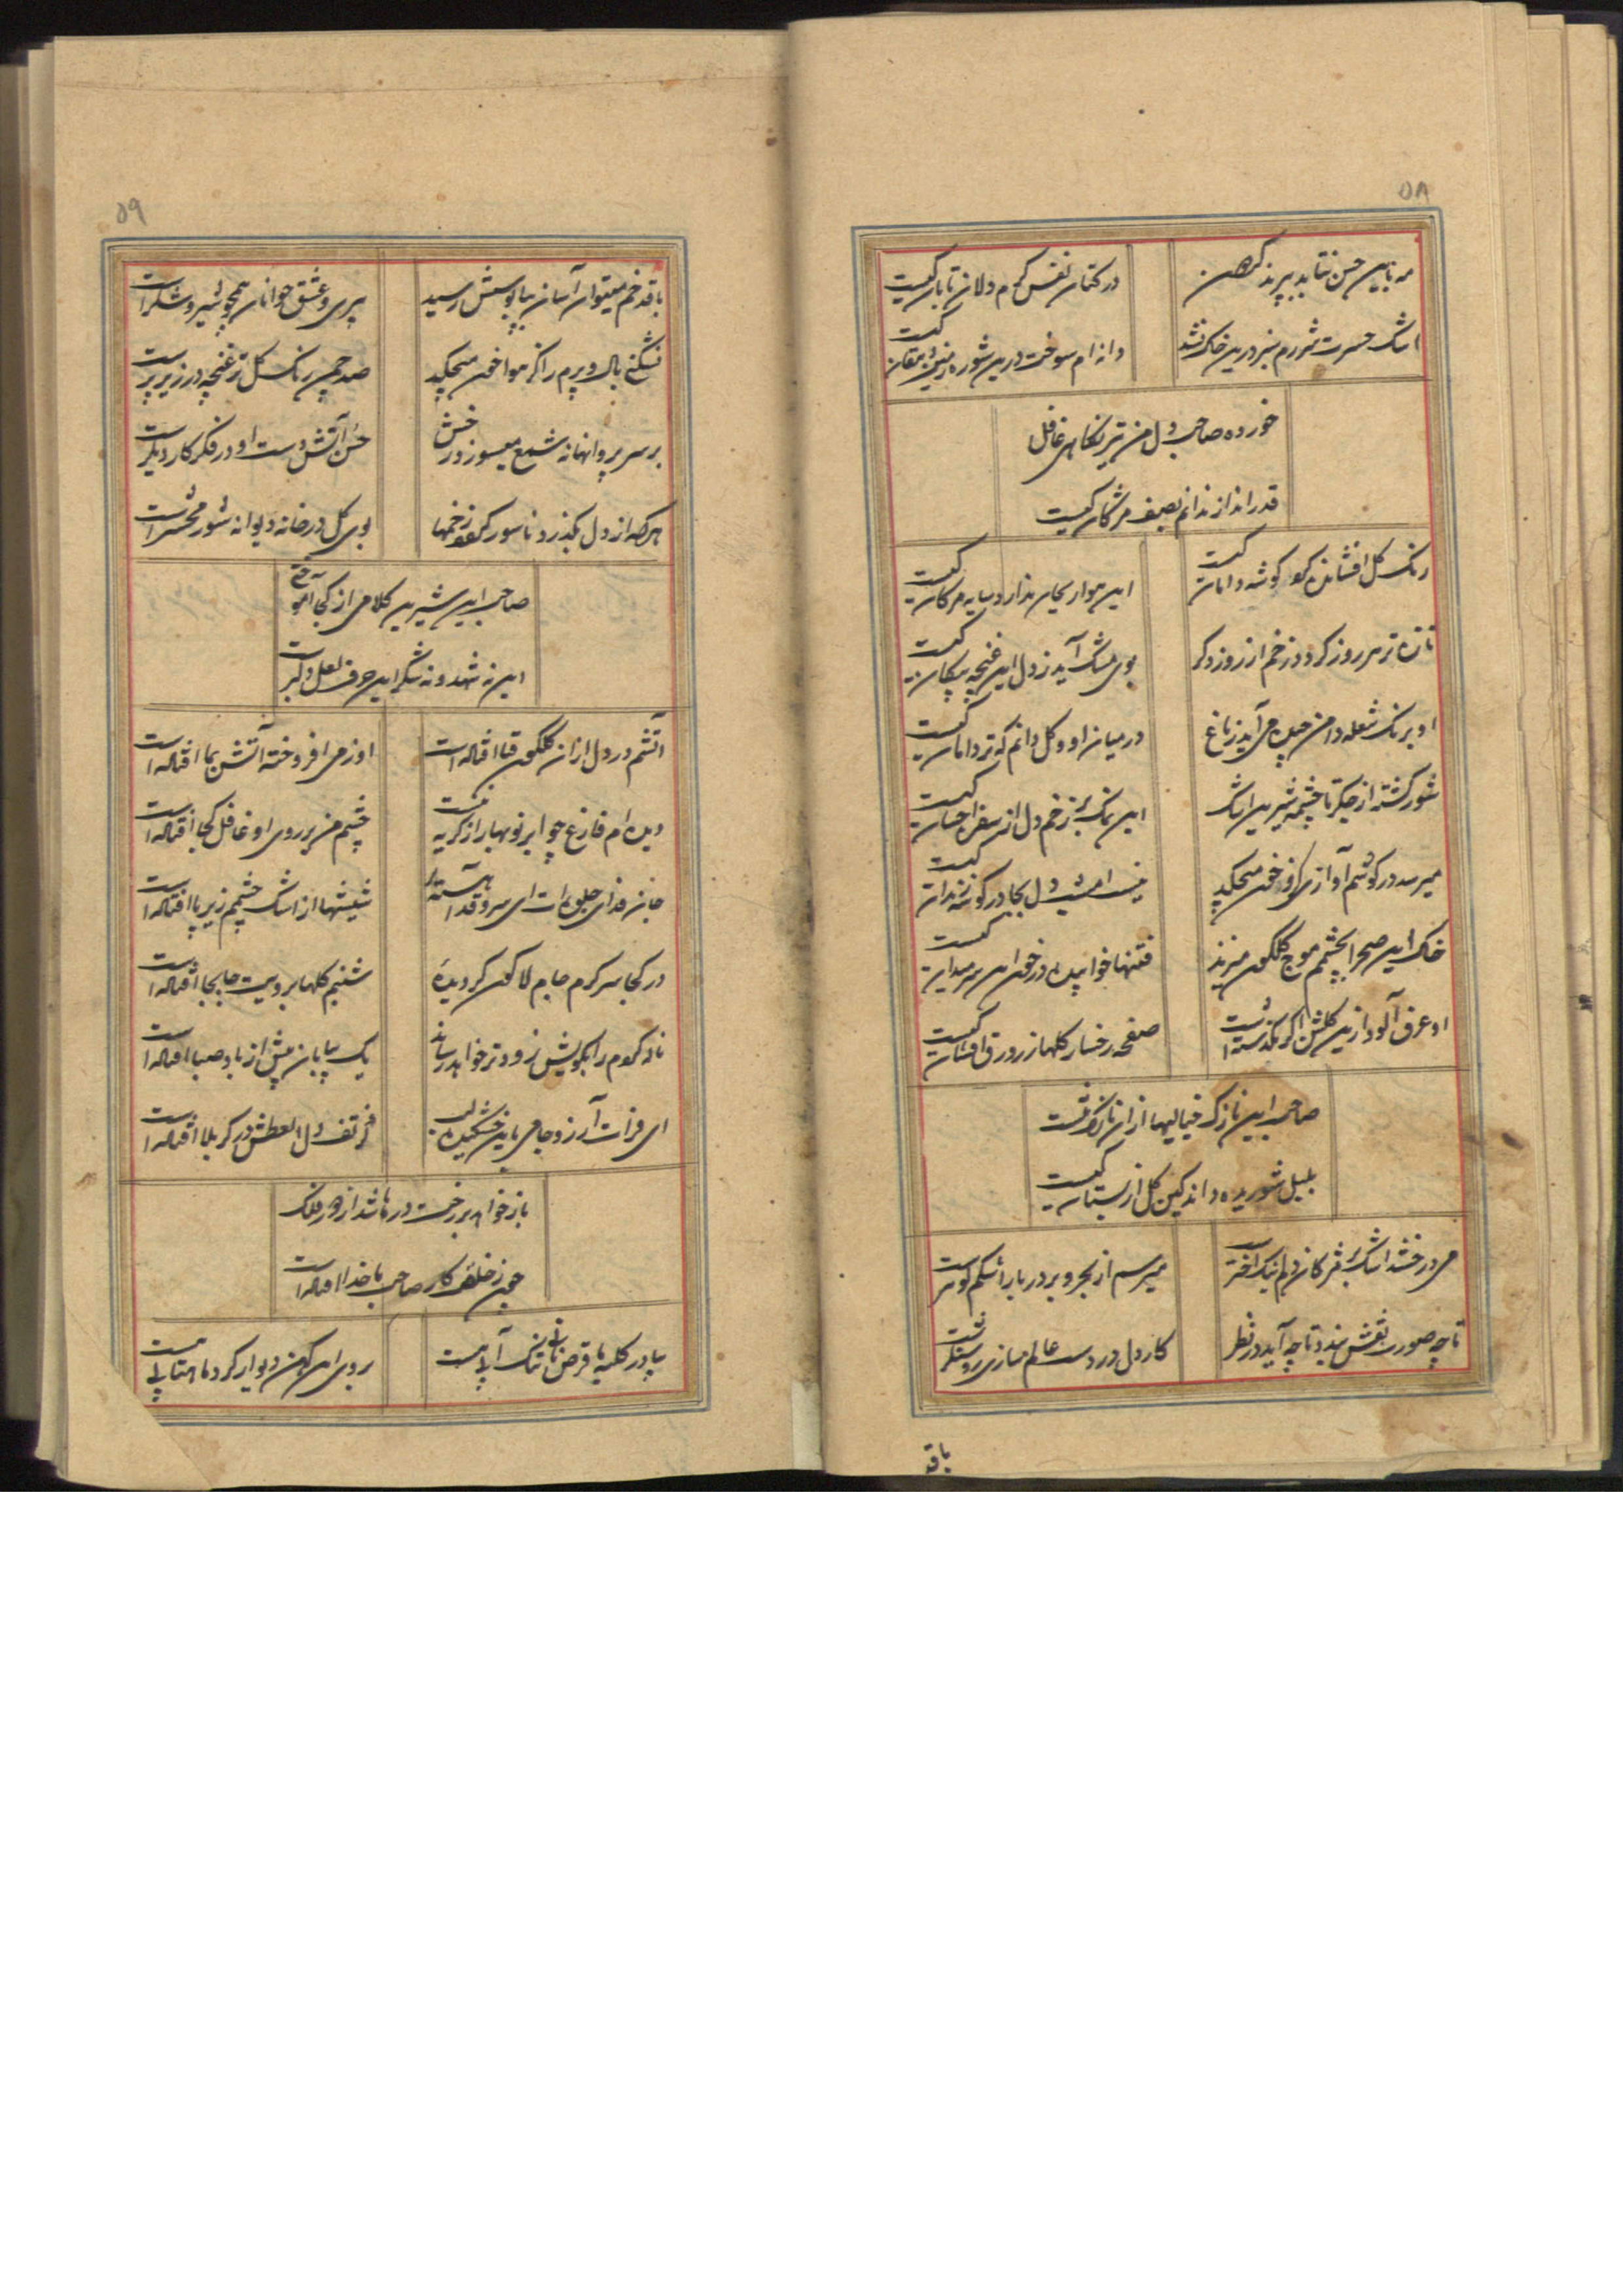 ۵۸
مه باین حسن نتابد پرند گردهن
در کتان نفس گرم دلان تابان کیست
اشک حسرت ثمرم سبز درین خاک نشد
دانه ام سوخت درین شوره زمین دهقان کیست
خورده صاحب دل من تیر نگاهی غافل
قدر انداز ندانم بصف مژگان کیست
رنگ گل افشانده گرد گوشه دامان کیست
این هوا ریحان ندارد سایه مژگان کیست
تازه تر هر روز گردد زخم از روز دگر
بوی مشک آید ز دل این غنچه پیکان کیست
او برنگ شعله دامن چیده می آید ز باغ
در میان او و گل دانم که تر دامان کیست
شور گشته از جگر تا چشمه شیرین اشک
این نمک بر زخم دل از سفره احسان کیست
میرسد در گوشم آوازی کزو خون میچکد
نیست امشب دل بجا در گوشه زندان کیست
خاک این صحرا بچشمم موج گلگون میزند
فتنها خوابیده در خون این سر میدان کیست
او عرق آلود ازین گلشن اگر نگذشته است
صفحه رخسار گلها زر ورق افشان کیست
صاحب این نازک خیالیها از آن نازک تنست
بلبل شوریده داند کین گل از بستان کیست
می درخشد اشک بر مژگان دلم نیک اخترست
میرسم از بحر و بر در بار اشکم گوهرست
تا چه صورت نقش بندد تا چه آید در نظر
کار دل در دست عالم سازی روشنگرست
باقد
۵۹
باقد خم میتوان آسان بپابوسش رسید
پیری و عشق جوانان همچو شیر و شکرست
نشکنی بال و پرم را کز هوا خون میچکد
صد چمن رنگ گل تر غنچه در زیر پرست
بر سر پروانها نه شمع میسوزد رخش
حسن آتش دست او در فکر کار دیگرست
هر که از دل بگذرد ناسور گردد زخمها
بوی گل در خانه دیوانه شور محشرست
صاحب این شیرین کلامی از کجا آموختی
این نه شهد و نه شکر این حرف لعل دلبرست
آتشم در دل از آن گلگون قبا افتاده است
او ز می افروخته آتش بما افتاده است
دیده ام فارغ چو ابر نوبهار از گریه نیست
چشم من بر روی او غافل کجا افتاده است
جان فدای جلوه ات ای سرو قد آهسته تر
شیشها از اشک چشمم زیر پا افتاده است
در کجا سرگرم جام لاله گون گردیده
شبنم گلها برویت جابجا افتاده است
ناله گرمم را بکویش زودتر خواهد رساند
یک بیابان پیش از باد صبا افتاده است
ای فرات آرزو جامی باین خشکیده لب
کز تف دل العطش در کربلا افتاده است
باز خواهد بر رخت درها شد از دور فلک
چون ز خلقی کار صاحب با خدا افتاده است
بیا در کلبه ما قرص نانی تنک آبی هست
بروی این کهن دیوار گرد ماهتابی هست